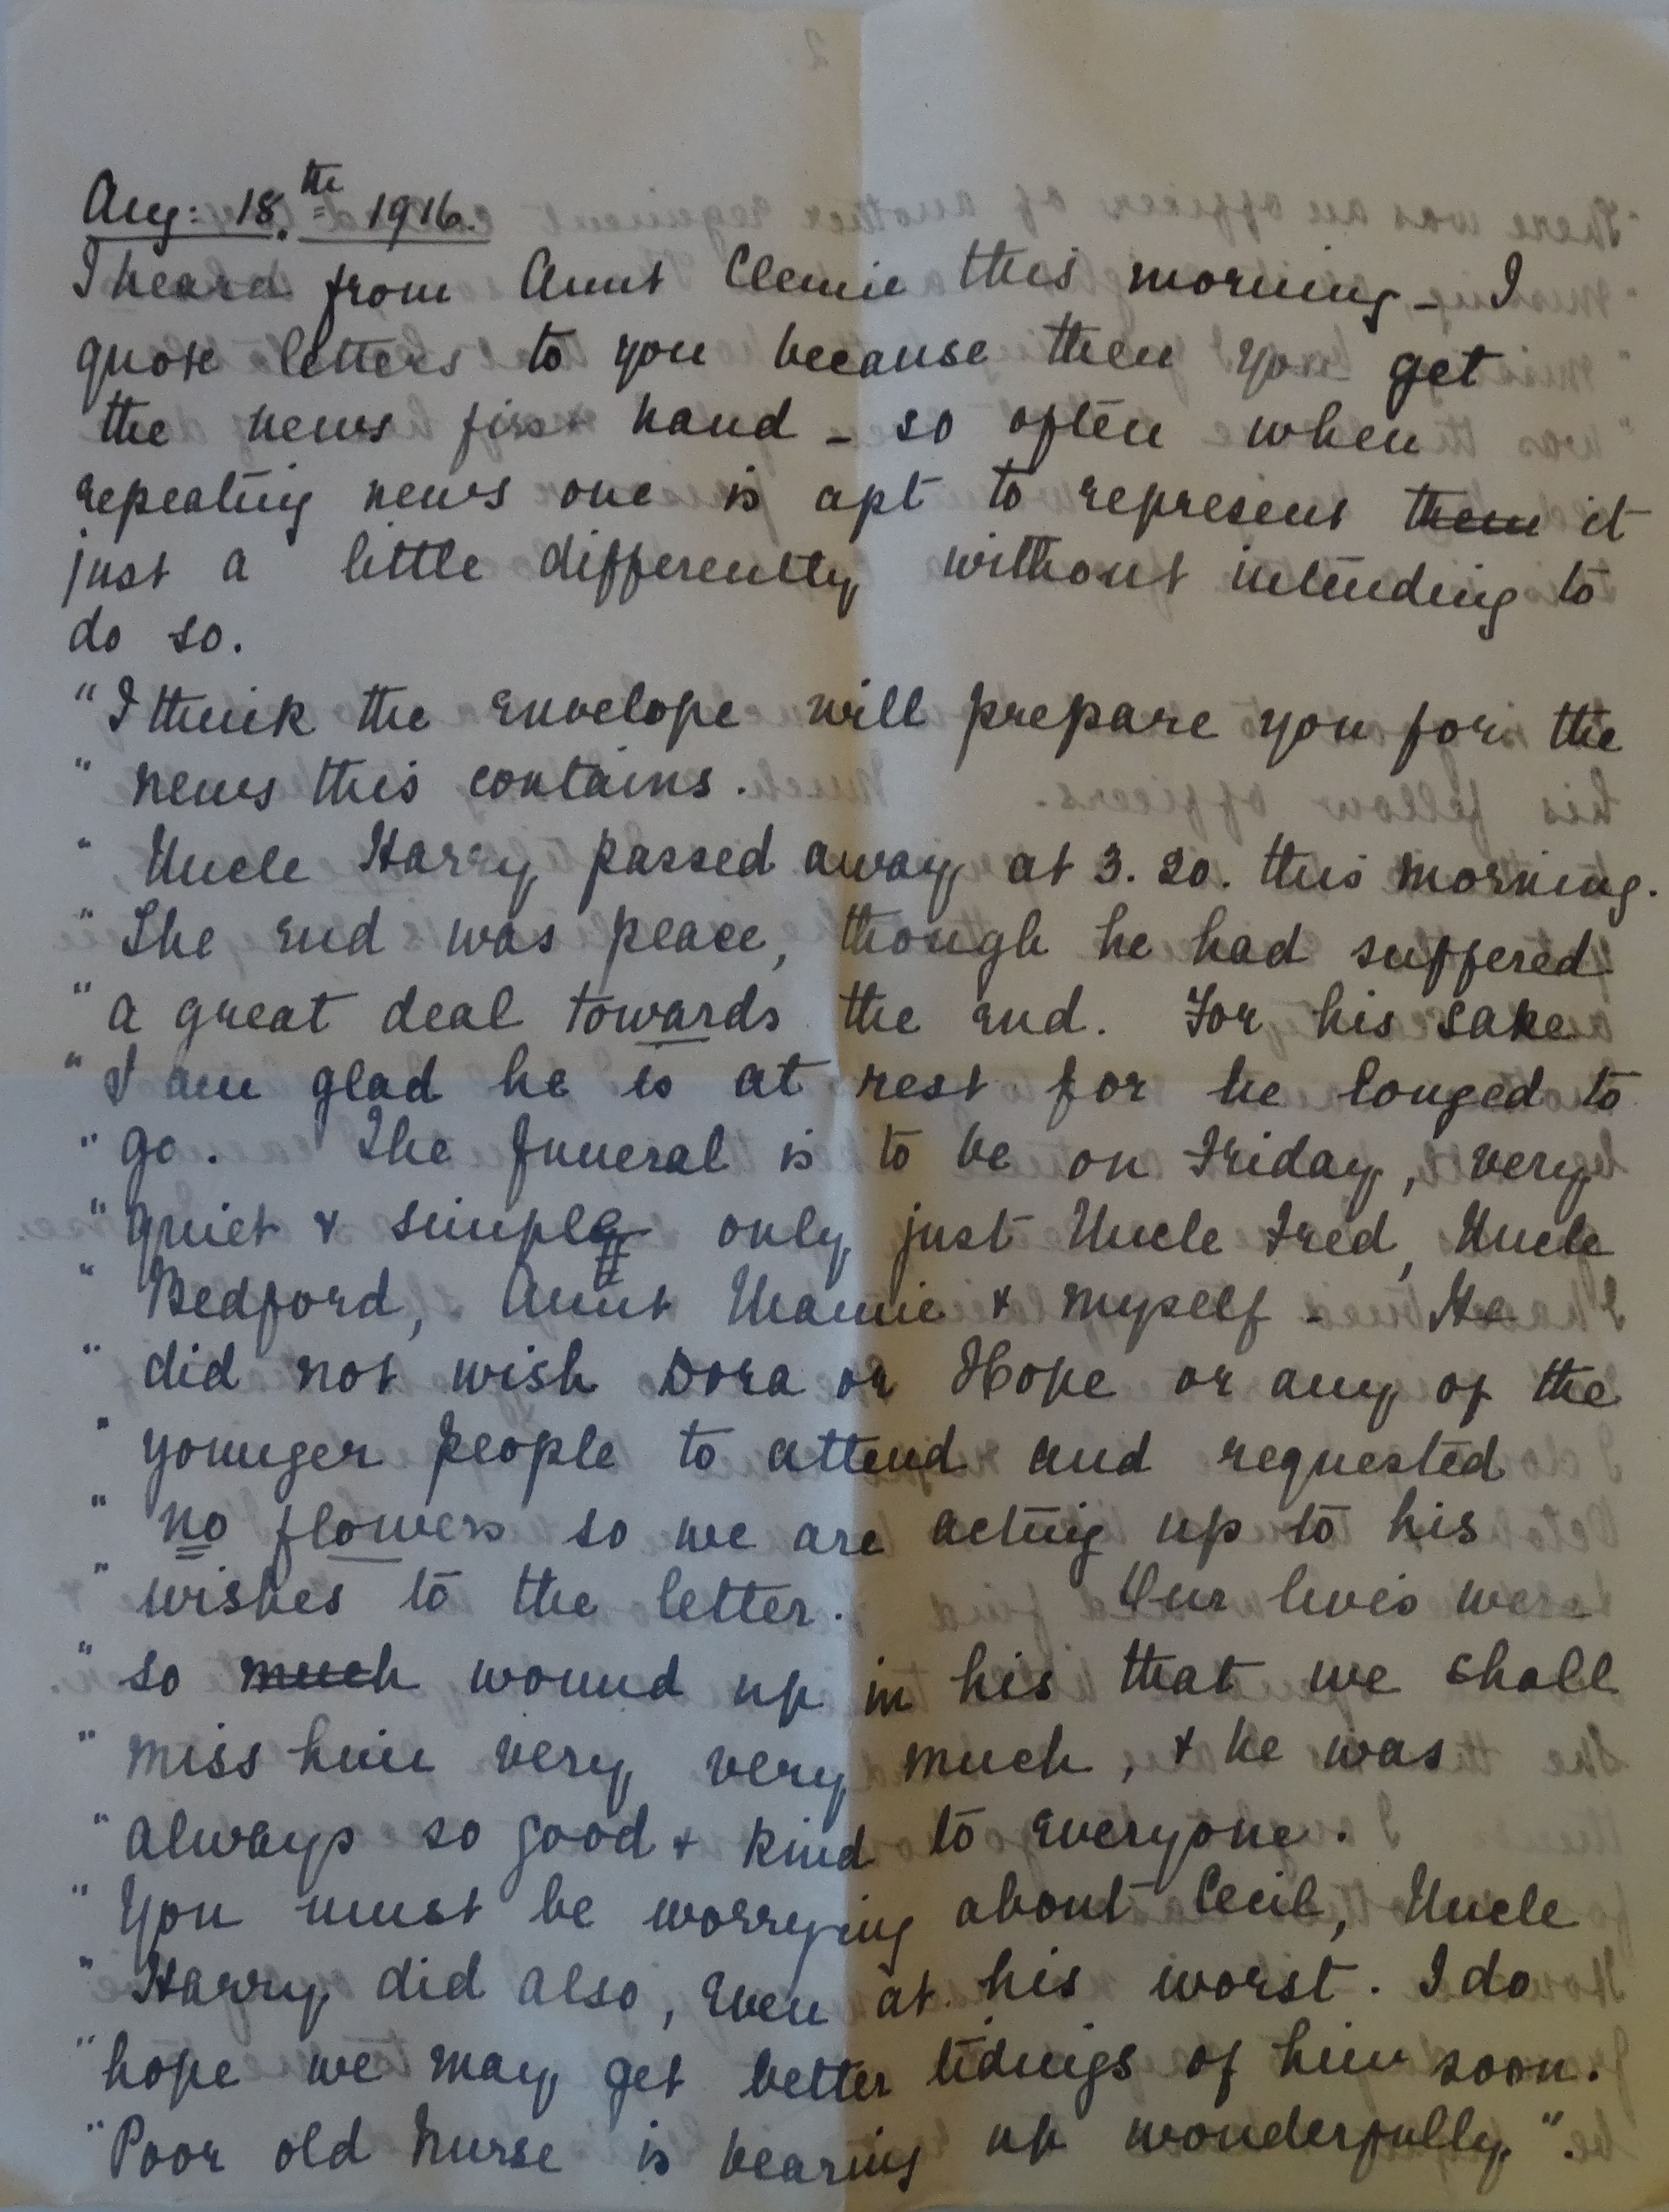 Aug: 18.th 1916.
I heard from Aunt Clemie this morning - I
quote letters to you because then you get
the news first hand - so often when
repeating news one is apt to represent them it
just a little differently without intending to
do so.
"I think the envelope will prepare you for the
" news this contains.
" Uncle Harry passed away at 3.20. this morning.
" The end was peace, though he had suffered
" a great deal towards the end. For his sake
" I am glad he is at rest for he longed to
" go. The funeral is to be on Friday, very
" quiet & simple only just Uncle Fred, Uncle
" Bedford, Aunt Mamie & myself - He
" did not wish Dora or Hope or any of the
" younger people to attend and requested
" no flowers so we are acting up to his
" wishes to the letter. Our lives were
" so much wound up in his that we shall
" miss him very very much, & he was
" always so good & kind to everyone.
" You must be worrying about Cecil, Uncle
" Harry did also, even at his worst. I do
" hope we may get better tidings of him soon.
" Poor old Nurse is bearing up wonderfully".